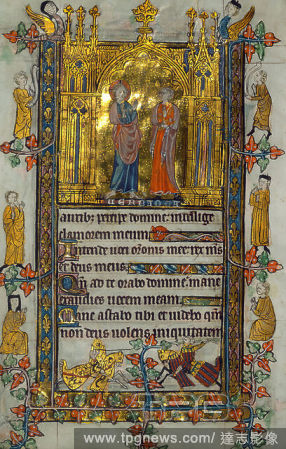 aurib; percipe domine intellige
clamorem meum
Intende uoci oronis mee rex ms
et deus meus
Qm ad te orabo domine mane
exaudies uocem meam
Mane astabo tibi et uidebo qm
non deus uolens iniquitatem
www.tpgnews.com/ 達志影像